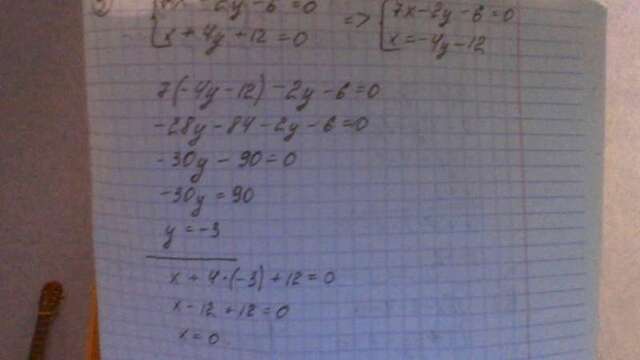 {7x - 2y - 6 = 0 => {7x - 2y - 6 = 0
{x + 4y + 12 = 0 {x = -4y - 12
7(-4y - 12) - 2y - 6 = 0
-28y - 84 - 2y - 6 = 0
-30y - 90 = 0
-30y = 90
y = -3
x + 4·(-3) + 12 = 0
x - 12 + 12 = 0
x = 0